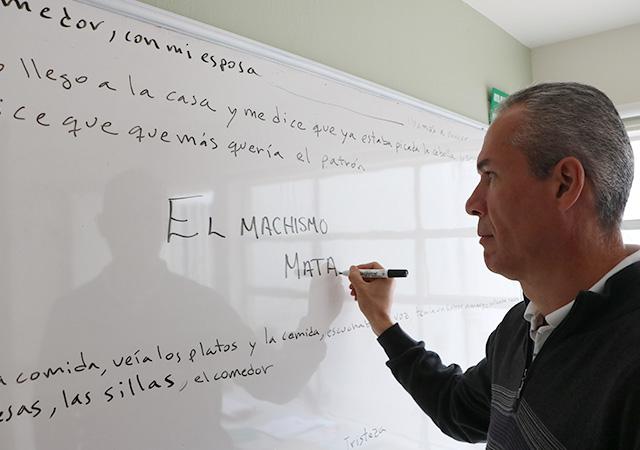 medor, con mi esposa
llego a la casa y me dice que ya estaba picada la cebolla
ice que que más quería el patrón
EL MACHISMO
MATA
a comida, veía los platos y la comida, escuchaba voz
esas, las sillas, el comedor
Tristeza